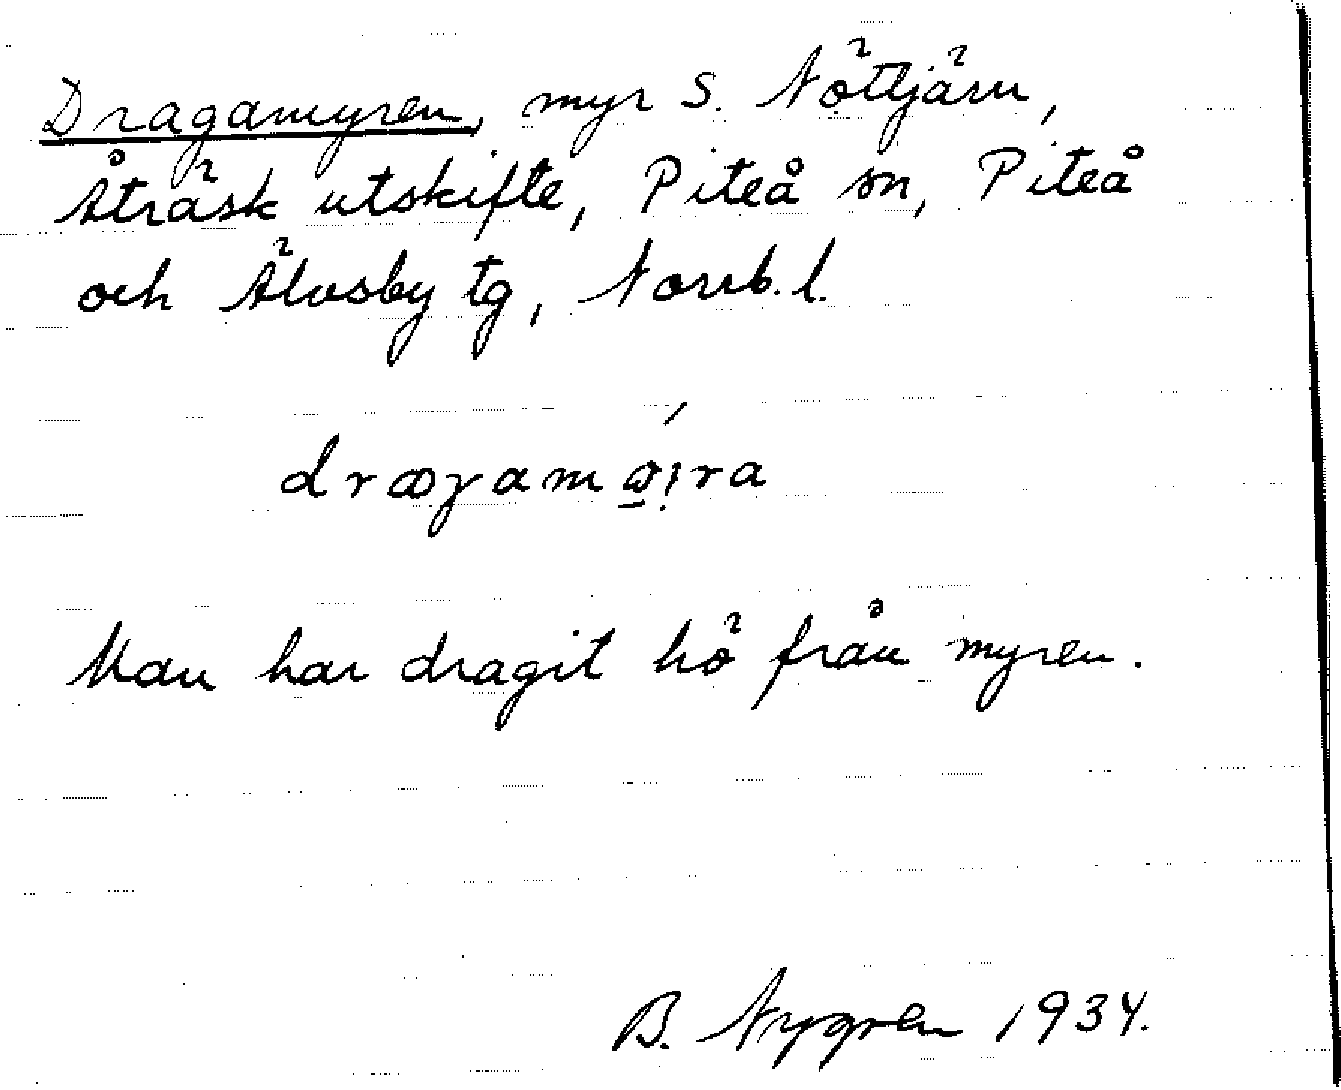 Dragamyren, myr S. Nöttjärn,
Åträsk utskifte, Piteå sn, Piteå
och Älvsby tg, Norrb. l.
Man har dragit hö från myren.
B. Nygren 1934.